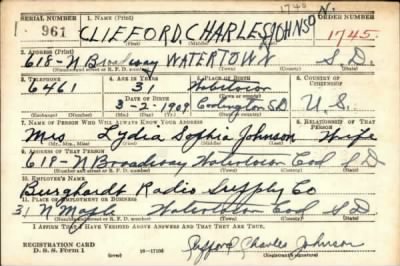 SERIAL NUMBER 1. NAME (Print) ORDER NUMBER
961 CLIFFORD, CHARLES JOHNSON. 1745.
(First) (Middle) (Last)
2. ADDRESS (Print)
618-N Broadway WATERTOWN S D.
(Number and street or R. F. D. number) (Town) (County) (State)
3. TELEPHONE 4. AGE IN YEARS 5. PLACE OF BIRTH 6. COUNTRY OF CITIZENSHIP
6461 31 Watertown
DATE OF BIRTH
3-2-1909 Codington SD U.S.
(Mo.) (Day) (Yr.) (State or country)
7. NAME OF PERSON WHO WILL ALWAYS KNOW YOUR ADDRESS 8. RELATIONSHIP OF THAT PERSON
Mrs Lydia Sophie Johnson Wife
(Mr., Mrs., Miss) (First) (Middle) (Last)
9. ADDRESS OF THAT PERSON
618-N Broadway Watertown Cod S D
(Number and street or R. F. D. number) (Town) (County) (State)
10. EMPLOYER'S NAME
Burghardt Radio Supply Co
11. PLACE OF EMPLOYMENT OR BUSINESS
31 N Maple Watertown Cod S D
(Number and street or R. F. D. number) (Town) (County) (State)
I AFFIRM THAT I HAVE VERIFIED ABOVE ANSWERS AND THAT THEY ARE TRUE.
REGISTRATION CARD
D. S. S. Form 1 (over) Clifford Charles Johnson
(Registrant's signature)